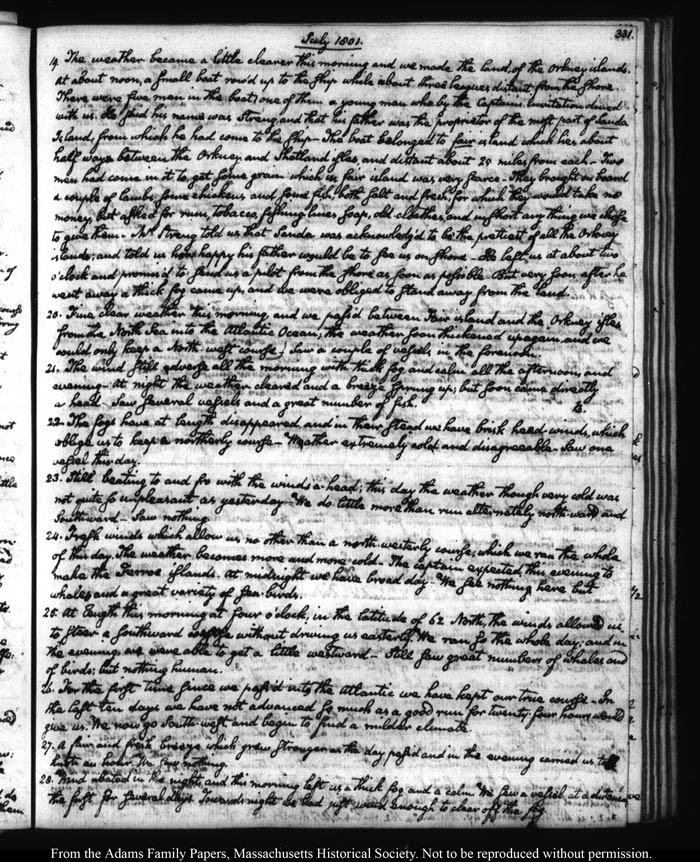 July 1801.
331.
19. The weather became a little clearer this morning and we made the land, of the Orkney islands.
at about noon, a small boat row'd up to the ship while about three leagues distant from the shore.
There were five men in the boat; one of them a young man who by the Captain's invitation dined
with us. He said his name was Streng, and that his father was the proprietor of the most part of Sanda
Island, from which he had come to the ship— The boat belonged to fair island which lies about
half ways between the Orkney and Shetland isles, and distant about 25 miles from each— Two
men had come in it to get some grain which in fair island was very scarce— They brought on board
a couple of lambs, some chickens, and some fish, both salt and fresh, for which they would take no
money, but asked for rum, tobacco, fishing lines, soap, old cloathes, and in short any thing we chose
to give them— Mr. Streng told us that Sanda was acknowledg'd to be the prettiest of all the Orkney
islands; and told us how happy his father would be to see us on shore— He left us at about two
o'clock and promis'd to send us a pilot from the shore as soon as possible. But very soon after he
went away a thick fog came up, and we were obliged to stand away from the land.
20. Fine clear weather this morning, and we pass'd between Fair island and the Orkney isles,
from the North Sea into the Atlantic Ocean, the weather soon thickened up again, and we
could only keep a North-west course; Saw a couple of vessels in the forenoon.
21. The wind still adverse all the morning with thick fog, and calm all the afternoon, and
evening— At night the weather cleared and a breeze sprung up; but soon came directly
a head— Saw several vessels and a great number of fish.
22. The fogs have at length disappeared, and in their stead we have brisk head winds, which
oblige us to keep a northerly course— Weather extremely cold and disagreeable— Saw one
vessel this day.
23. Still beating to and fro with the winds a-head; this day the weather though very cold was
not quite so unpleasant as yesterday— We do little more than run alternately north-ward and
Southward— Saw nothing.
24. Fresh winds which allow us no other than a north-westerly course; which we ran the whole
of this day. The weather becomes more and more cold. The captain expected this evening to
make the Ferroe islands. At midnight we have broad day— We see nothing here but
whales and a great variety of sea-birds.
25. At length this morning at four o'clock, in the latitude of 62 North, the winds allowed us
to steer a Southward course without driving us easterly. We ran so the whole day; and in
the evening we were able to get a little westward— Still saw great numbers of whales and
of birds; but nothing human.
26. For the first time since we pass'd into the Atlantic we have kept our true course— In
the last ten days we have not advanced so much as a good run for twenty-four hours would
give us. We now go South-west and begin to find a milder climate.
27. A fair and fresh breeze which grew stronger as the day pass'd and in the evening carried us ten
knots an hour. We saw nothing.
28. Wind abated in the night, and this morning left us a thick fog and a calm. We saw a vessel at a distance,
the first for several days. Towards night we had just wind enough to clear off the fog
From the Adams Family Papers, Massachusetts Historical Society. Not to be reproduced without permission.